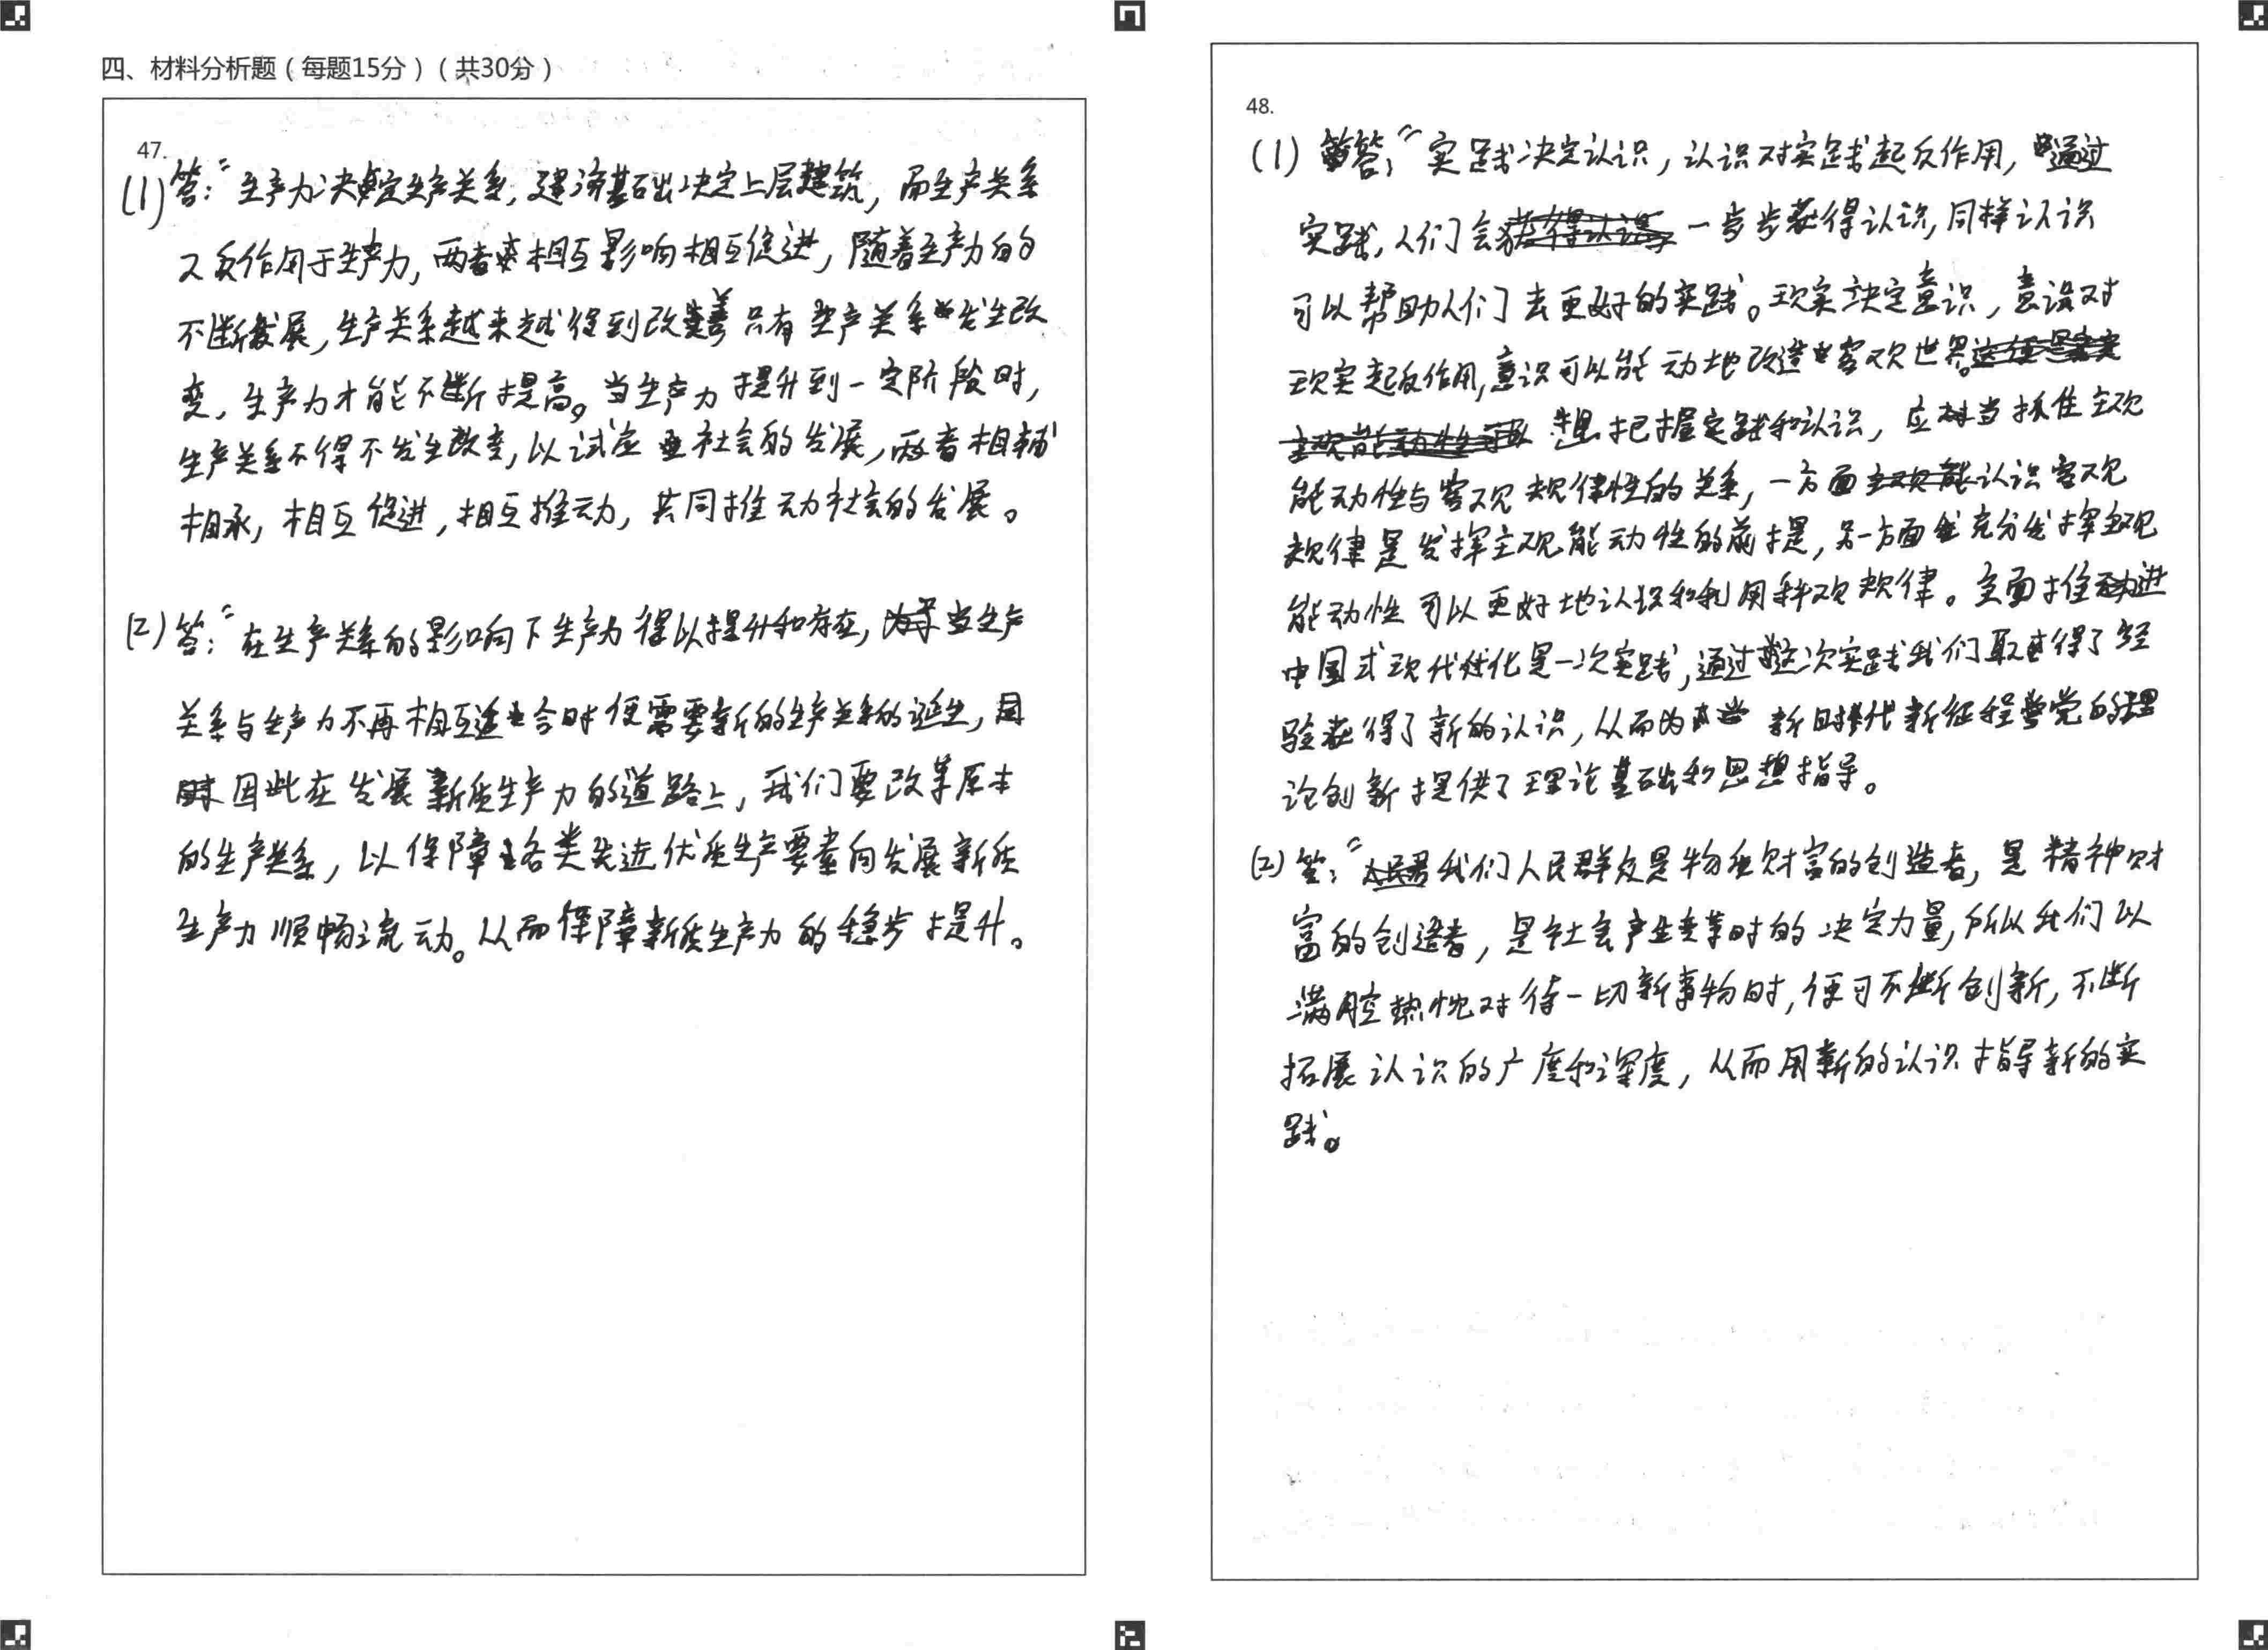 四、材料分析题（每题15分）（共30分）
47.
(1) 答：生产力决定生产关系,经济基础决定上层建筑，而生产关系
又反作用于生产力，两者相互影响相互促进，随着生产力的
不断发展，生产关系越来越得到改善只有生产关系发生改
变，生产力才能不断提高。当生产力提升到一定阶段时，
生产关系不得不发生改变，以试应社会的发展，两者相辅
相承，相互促进，相互推动，共同推动社会的发展。
(2) 答：在生产关系的影响下生产力得以提升和存在，当生产
关系与生产力不再相互适合时便需要新的生产关系的诞生，
因此在发展新质生产力的道路上，我们要改革原本
的生产关系，以保障各类先进优质生产要素向发展新质
生产力顺畅流动。从而保障新质生产力的稳步提升。
48.
(1) 答：实践决定认识，认识对实践起反作用，通过
实践，人们会一步步获得认识，同样认识
可以帮助人们去更好的实践。现实决定意识，意识对
现实起反作用，意识可以能动地改造客观世界。
想把握实践和认识，应当抓住主观
能动性与客观规律性的关系，一方面认识客观
规律是发挥主观能动性的前提，另一方面充分发挥主观
能动性可以更好地认识和利用科观规律。全面推进
中国式现代化是一次实践，通过这次实践我们取得了经
验获得了新的认识，从而为新时代新征程党的理
论创新提供了理论基础和思想指导。
(2) 答：我们人民群众是物质财富的创造者，是精神财
富的创造者，是社会产生变革时的决定力量，所以我们以
满腔热忱对待一切新事物时，便可不断创新，不断
拓展认识的广度和深度，从而用新的认识指导新的实
践。